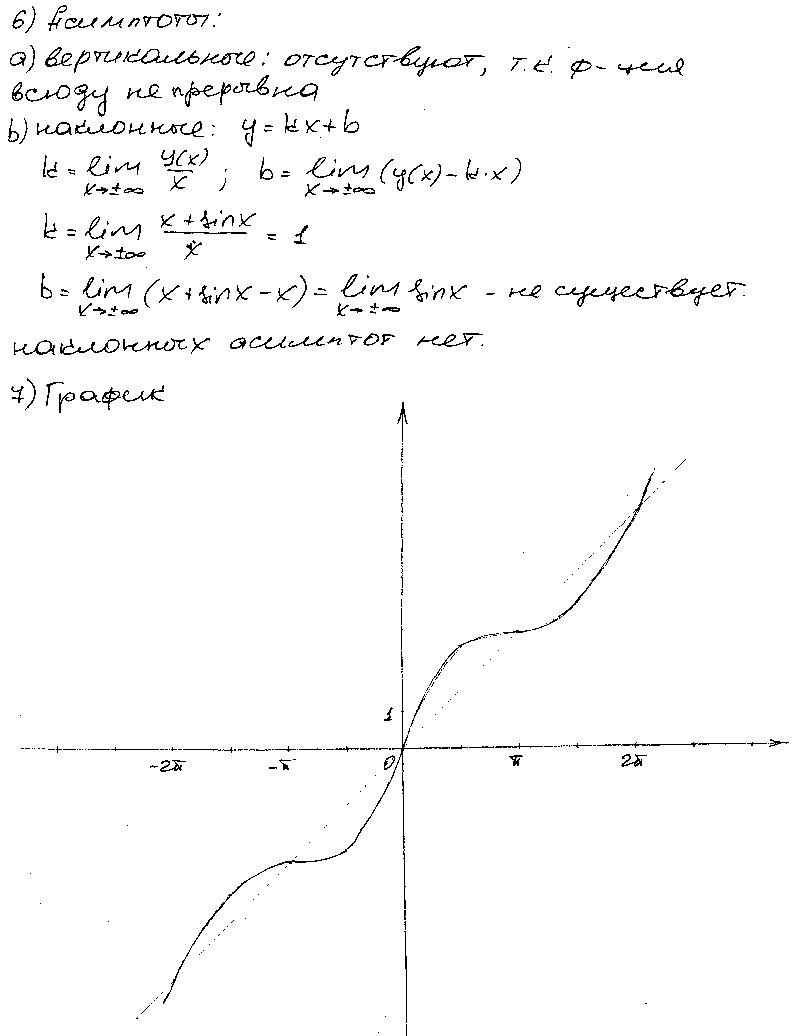 6) Асимптоты:
а) вертикальные: отсутствуют, т.к. ф-ция
всюду не прерывна
b) наклонные: y = kx + b
k = lim x→±∞ y(x)/x ; b = lim x→±∞ (y(x) - k·x)
k = lim x→±∞ (x + sinx)/x = 1
b = lim x→±∞ (x + sinx - x) = lim x→±∞ sinx - не существует.
наклонных асимптот нет.
7) График
1
-2π -π 0 π 2π